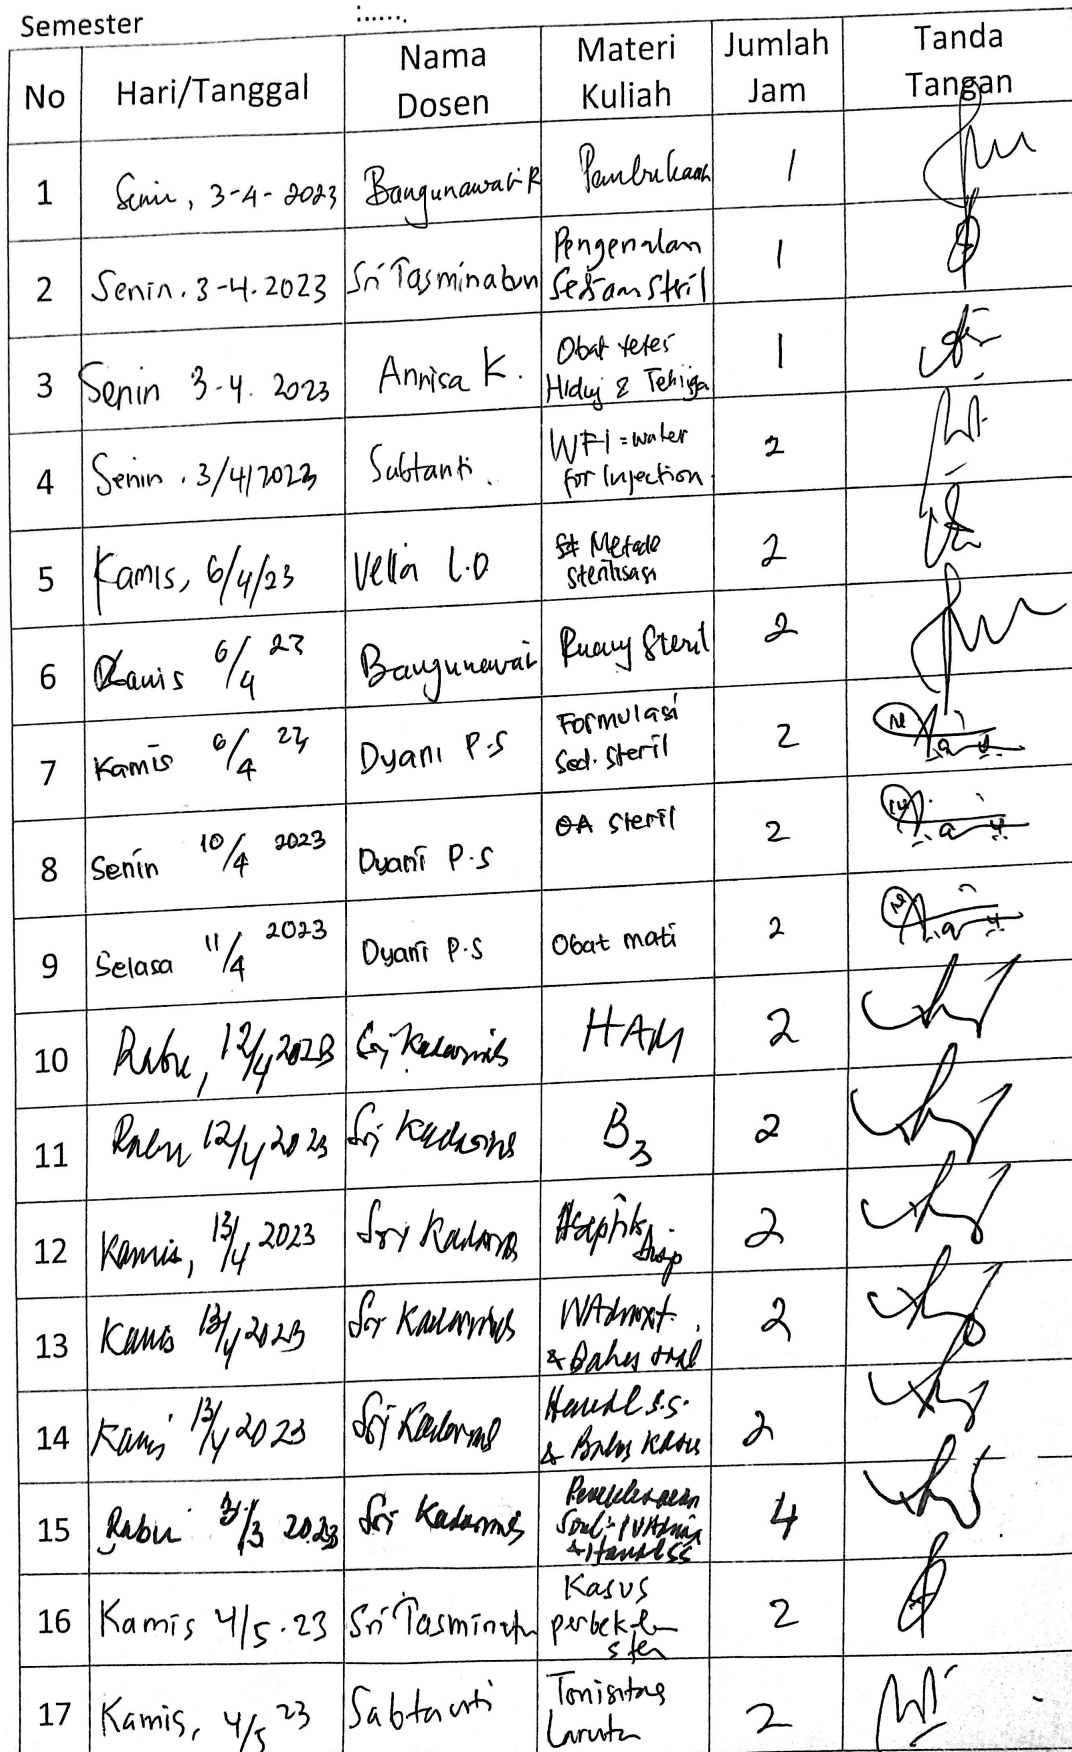 Semester :......
No Hari/Tanggal Nama Dosen Materi Kuliah Jumlah Jam Tanda Tangan
1 Senin, 3-4-2023 Bangunawati R Pembukaan 1
2 Senin. 3-4.2023 Sri Tasminatun Pengenalan Sediaan Stril 1
3 Senin 3-4. 2023 Annisa K. Obat tetes Hidug & Telinga 1
4 Senin . 3/4/2023 Sabtanti. WFI = water for Injection 2
5 Kamis, 6/4/23 Vella L.O Metode sterilisasi 2
6 Kamis 6/4 23 Bangunawati Ruang Steril 2
7 Kamis 6/4 23 Dyani P.S Formulasi Sed. Steril 2
8 Senin 10/4 2023 Dyani P.S OA Steril 2
9 Selasa 11/4 2023 Dyani P.S Obat mati 2
10 Rabu, 12/4 2023 Sri Kadarinah HAM 2
11 Rabu 12/4 2023 Sri B3 2
12 Kamis, 13/4 2023 Sri Aseptik 2
13 Kamis 13/4 2023 Sri & Bahas 2
14 Kamis 13/4 2023 Sri s.s. & Bahas Kasus 2
15 Rabu 20.23 Sri 4
16 Kamis 4/5.23 Sri Tasminatun Kasus 2
17 Kamis, 4/5 23 Sabtanti Tonisitas Larutan 2